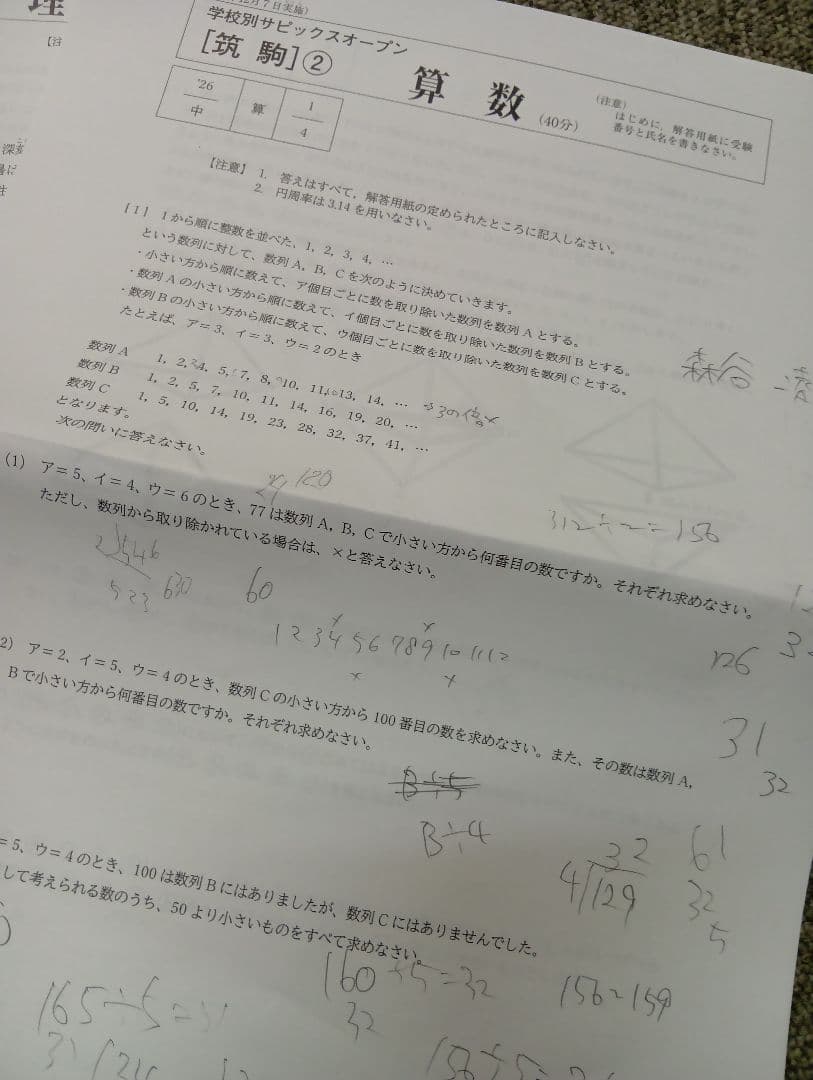 理
月7日実施)
学校別サピックスオープン
[筑 駒]②
算 数 (40分)
(注意) はじめに,解答用紙に受験
番号と氏名を書きなさい。
'26
中
算
1
4
【注意】 1. 答えはすべて,解答用紙の定められたところに記入しなさい。
2. 円周率は3.14を用いなさい。
[1] 1から順に整数を並べた、1, 2, 3, 4, …
という数列に対して、数列A, B, Cを次のように決めていきます。
・小さい方から順に数えて、ア個目ごとに数を取り除いた数列を数列Aとする。
・数列Aの小さい方から順に数えて、イ個目ごとに数を取り除いた数列を数列Bとする。
・数列Bの小さい方から順に数えて、ウ個目ごとに数を取り除いた数列を数列Cとする。
たとえば、ア=3、イ=3、ウ=2のとき
数列A 1, 2, 4, 5, 7, 8, 10, 11, 13, 14, …
⇒3の倍数×
数列B 1, 2, 5, 7, 10, 11, 14, 16, 19, 20, …
数列C 1, 5, 10, 14, 19, 23, 28, 32, 37, 41, …
となります。
次の問いに答えなさい。
森谷
120
312÷2=156
(1) ア=5、イ=4、ウ=6のとき、77は数列A, B, Cで小さい方から何番目の数ですか。それぞれ求めなさい。
ただし、数列から取り除かれている場合は、×と答えなさい。
60
1 2 3 4 5 6 7 8 9 10 11 12
126
31
32
2) ア=2、イ=5、ウ=4のとき、数列Cの小さい方から100番目の数を求めなさい。また、その数は数列A,
Bで小さい方から何番目の数ですか。それぞれ求めなさい。
B÷4
32
4)129
61
32
5
=5、ウ=4のとき、100は数列Bにはありましたが、数列Cにはありませんでした。
して考えられる数のうち、50より小さいものをすべて求めなさい。
160÷5=32
32
156~159
165÷5=31
31